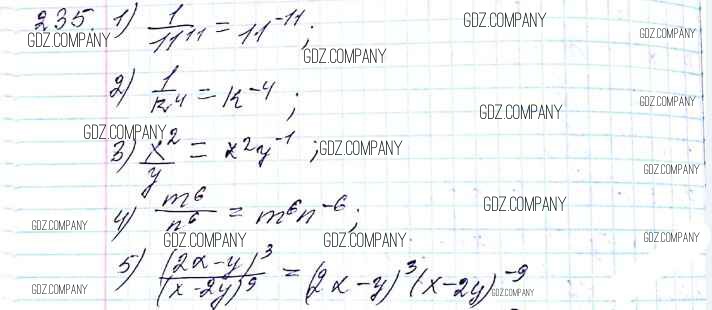 235. 1) 1/11¹¹ = 11⁻¹¹;
GDZ.COMPANY GDZ.COMPANY GDZ.COMPANY GDZ.COMPANY
2) 1/k⁴ = k⁻⁴;
GDZ.COMPANY GDZ.COMPANY GDZ.COMPANY
3) x²/y = x²y⁻¹; GDZ.COMPANY
GDZ.COMPANY
4) m⁶/n⁶ = m⁶n⁻⁶;
GDZ.COMPANY GDZ.COMPANY
GDZ.COMPANY GDZ.COMPANY GDZ.COMPANY
5) (2x-y)³/(x-2y)⁹ = (2x-y)³(x-2y)⁻⁹
GDZ.COMPANY GDZ.COMPANY